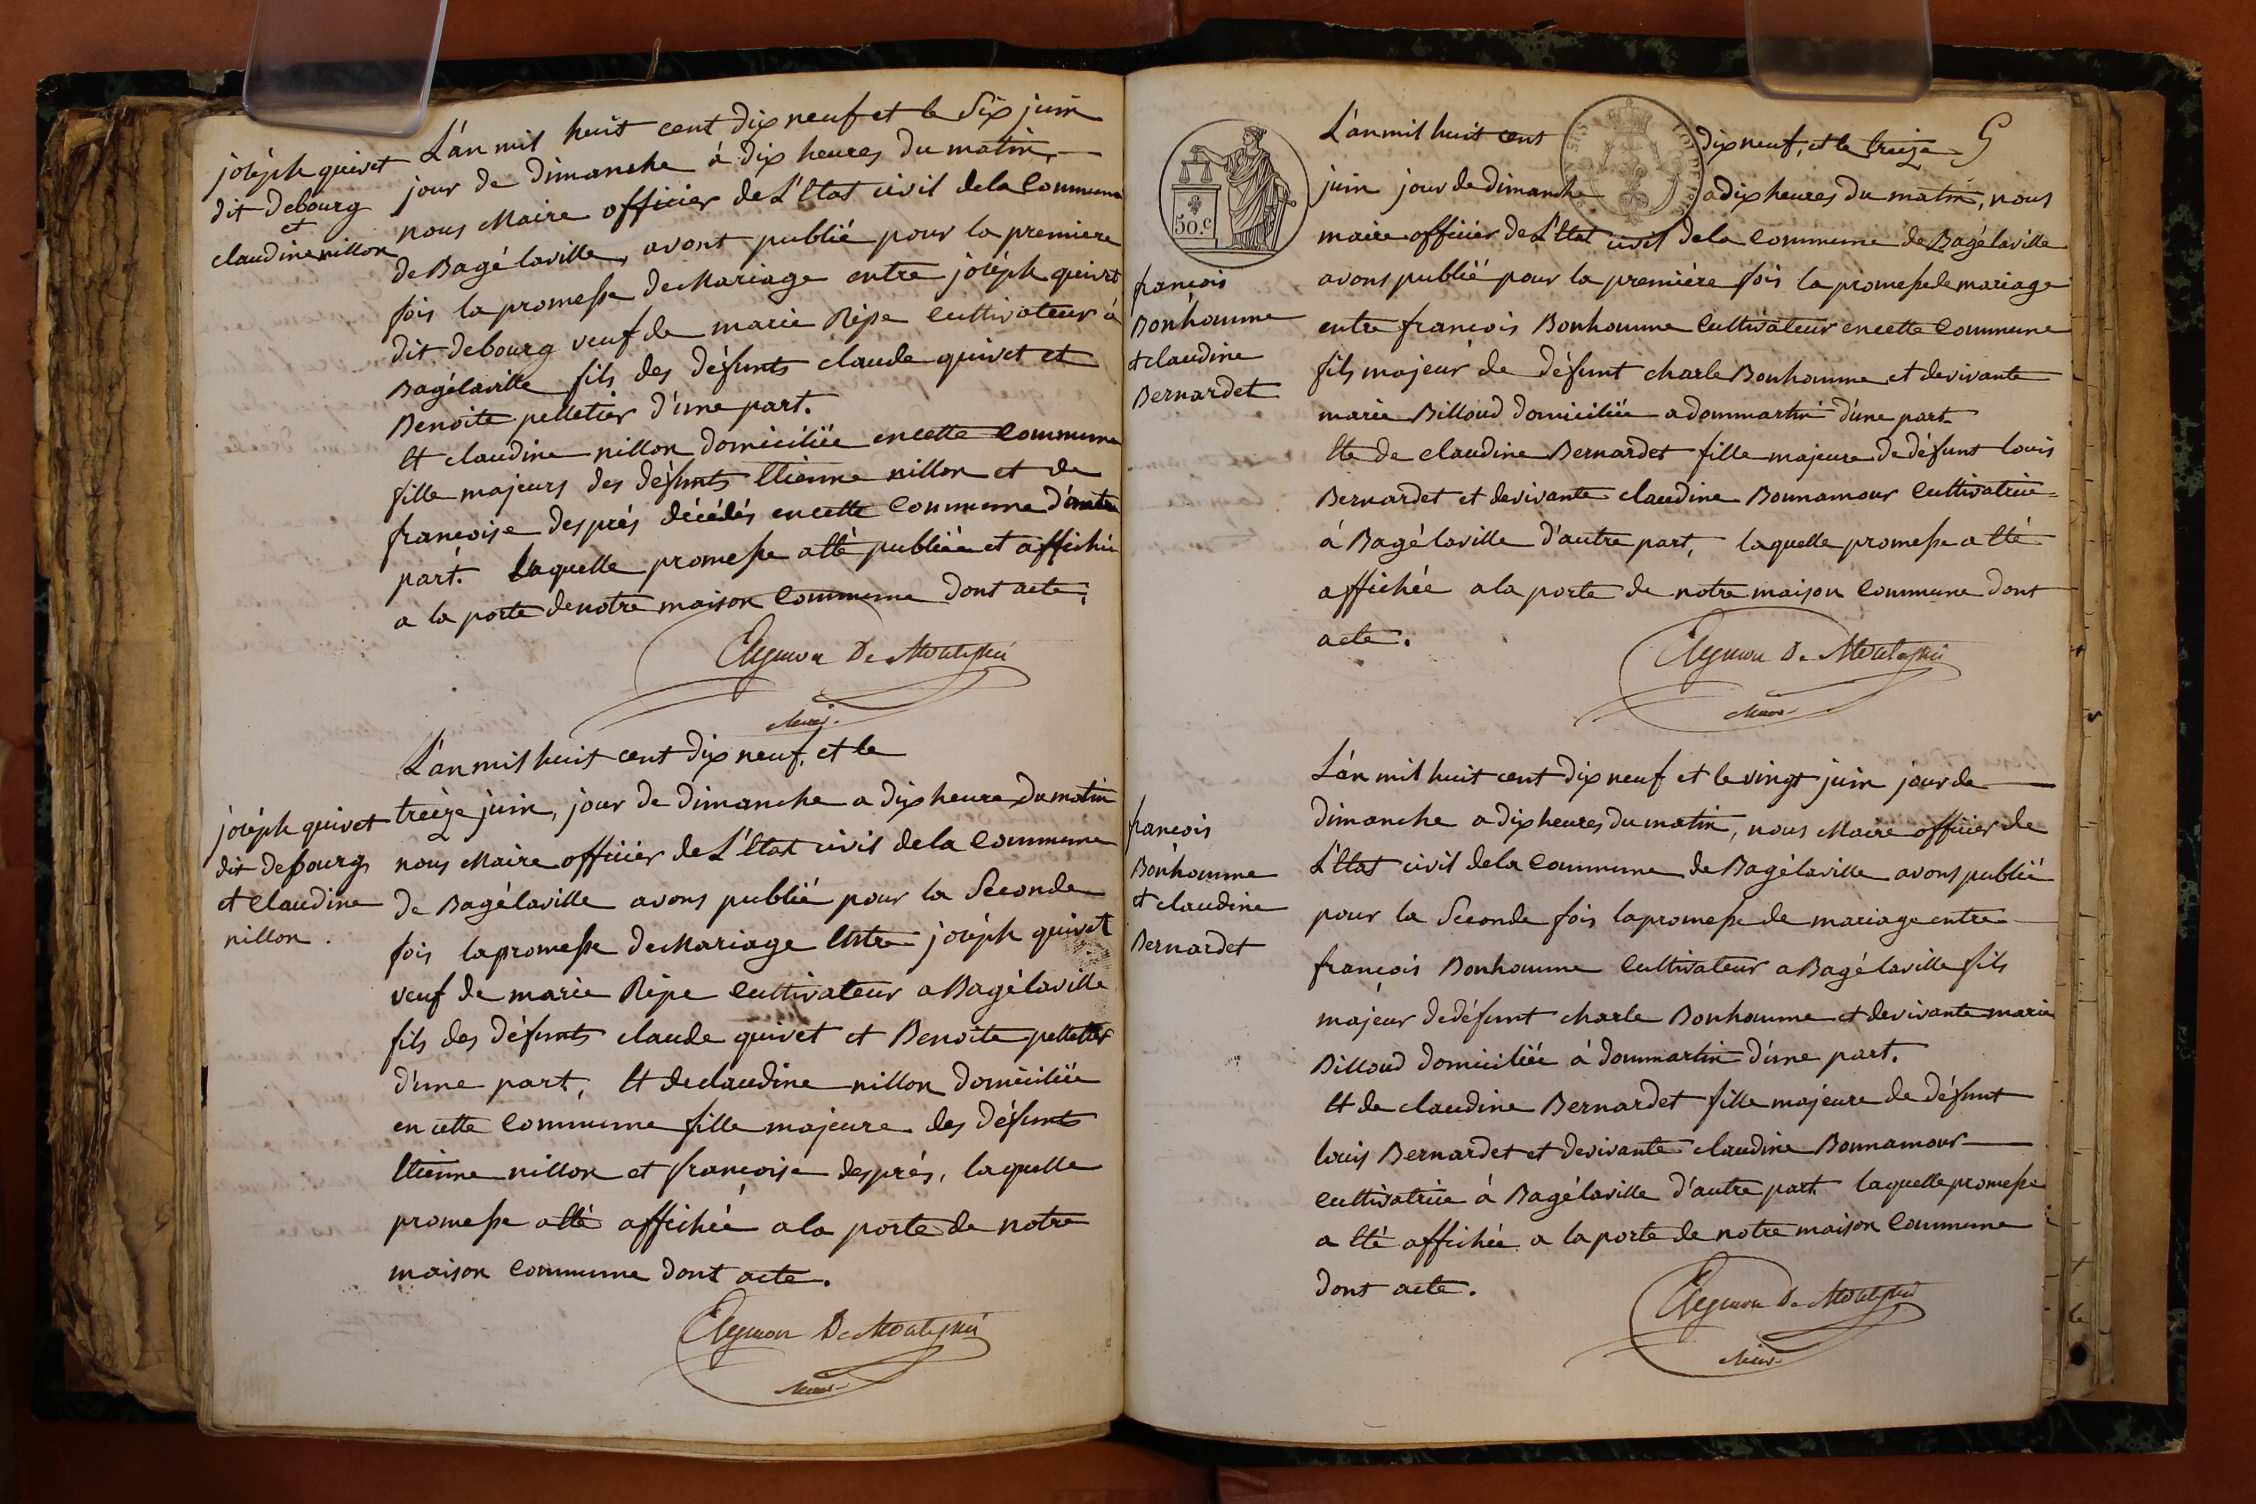 joséph quivet
dit debourg
et
claudine nillon
L'an mil huit cent dix neuf et le Six juin
jour de dimanche à dix heures du matin,
nous Maire officier de L'Etat civil de la Commune
de Bagé laville, avont publié pour la premiere
fois la promesse de Mariage entre joséph quivet
dit debourg veuf de marie Répe Cultivateur à
Bagélaville fils des défunts claude quivet et
Benoite pelletier d'une part.
Et claudine nillon domiciliée en cette Commune
fille majeurs des défunts Etienne nillon et de
francoise després décédés en cette Commune d'autre
part. Laquelle promesse a été publiée et affichée
a la porte de notre maison Commune dont acte.
Maire
joséph quivet
dit debourg
et Claudine
nillon.
L'an mil huit cent dix neuf, et le
treize juin, jour de dimanche a dix heure du matin
nous Maire officier de L'Etat civil de la Commune
de Bagélaville avons publié pour la Seconde
fois la promesse de Mariage Entre joséph quivet
veuf de marie Répe Cultivateur a Bagélaville
fils des défunts claude quivet et Benoite pelletier
d'une part, Et de claudine nillon domiciliée
en cette Commune fille majeure des défunts
Etienne nillon et francoise després, laquelle
promesse a été affichée a la porte de notre
maison Commune dont acte.
Maire
50.c
francois
Bonhomme
et claudine
Bernardet
L'an mil huit cent dix neuf, et le treize
juin jour de dimanche a dix heures du matin, nous
maire officier de L'Etat civil de la Commune de Bagélaville
avons publié pour la première fois la promesse de mariage
entre francois Bonhomme Cultivateur en cette Commune
fils majeur de défunt charle Bonhomme et de vivante
marie Billoud domiciliée a dommartin d'une part.
Et de claudine Bernardet fille majeure de défunt louis
Bernardet et de vivante claudine Bonnamour Cultivatrice
à Bagélaville d'autre part, laquelle promesse a été
affichée a la porte de notre maison Commune dont
acte.
Maire
francois
Bonhomme
et claudine
Bernardet
L'an mil huit cent dix neuf et le vingt juin jour de
dimanche a dix heures du matin, nous Maire officier de
L'Etat civil de la Commune de Bagélaville avons publié
pour la Seconde fois la promesse de mariage entre
francois Bonhomme Cultivateur a Bagélaville fils
majeur de défunt charle Bonhomme et de vivante marie
Billoud domiciliée à dommartin d'une part.
Et de claudine Bernardet fille majeure de défunt
louis Bernardet et de vivante claudine Bonnamour
Cultivatrice à Bagélaville d'autre part laquelle promesse
a été affichée a la porte de notre maison Commune
dont acte.
Maire